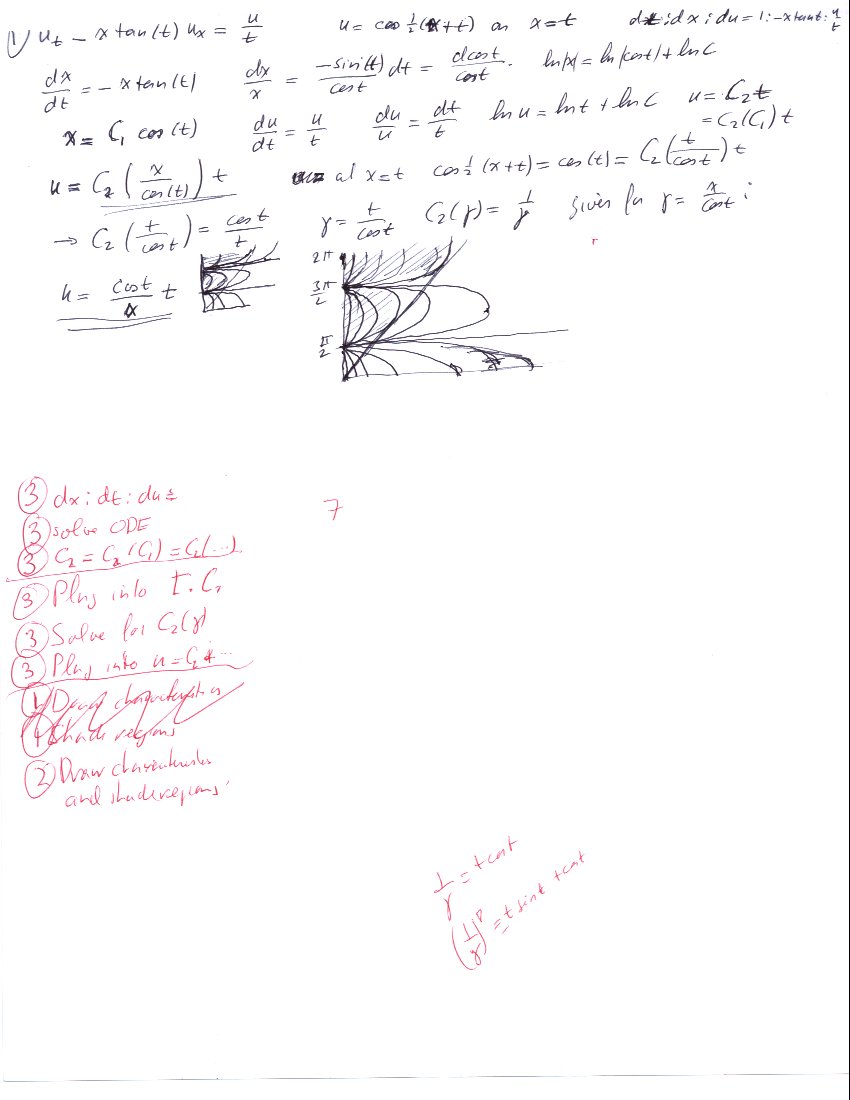 1) u_t − x tan(t) u_x = u/t   u = cos ½(x+t) on x=t   dt : dx : du = 1 : −x tan t : u/t
dx/dt = −x tan(t)   dx/x = −sin(t)/cost dt = dcost/cost.   ln|x| = ln|cost| + ln C
x = C₁ cos(t)   du/dt = u/t   du/u = dt/t   ln u = ln t + ln C   u = C₂ t
= C₂(C₁) t
u = C₂(x/cos(t)) t   at x=t   cos ½(x+t) = cos(t) = C₂(t/cost) t
→ C₂(t/cost) = cost/t   γ = t/cost   C₂(γ) = 1/γ   Given for γ = x/cost :
u = cost/x t
2π
3π/2
π/2
③ dx : dt : du =
③ solve ODE
7
③ C₂ = C₂(C₁) = C₁(...)
③ Plug into I.C.
③ Solve for C₂(γ)
③ Plug into u = C₂ ...
① Draw characteristics
① Shade regions
② Draw characteristics
and shade regions.
1/γ = t cost
(1/γ)' = t sint + cost